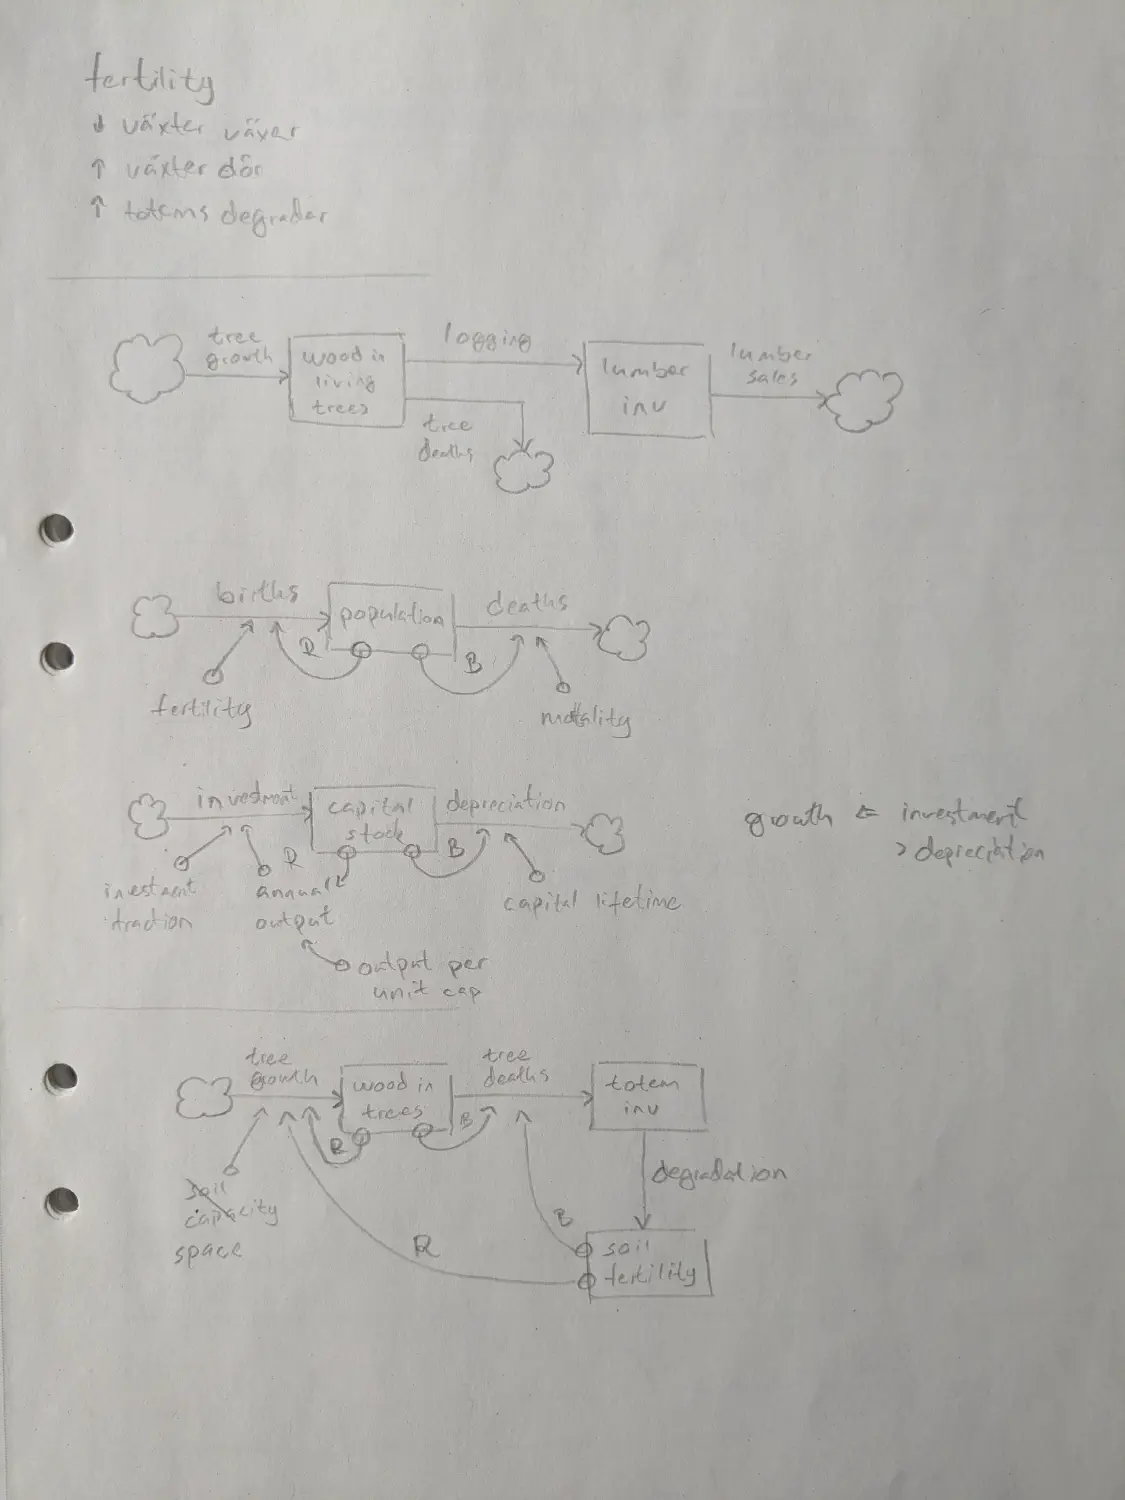 fertility
↓ växter växer
↑ växter dör
↑ totems degradar
tree
growth
wood in
living
trees
logging
tree
deaths
lumber
inv
lumber
sales
births
population
deaths
R
B
fertility
mortality
investment
capital
stock
depreciation
R
B
inestment
fraction
annual
output
capital lifetime
output per
unit cap
growth ⇐ investment
> depreciation
tree
growth
wood in
trees
tree
deaths
totem
inv
R
B
degradation
soil
capacity
space
R
B
soil
fertility